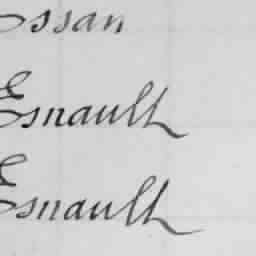 Essan
Esnault
Esnault